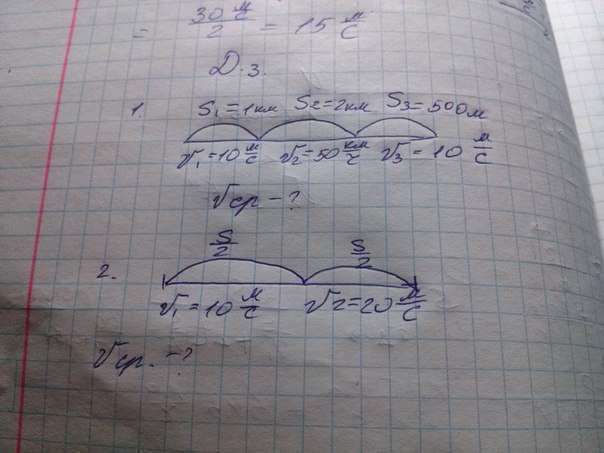 = 30 м/с / 2 = 15 м/с
Д.з.
1. S₁=1км S₂=2км S₃=500м
v₁=10 м/с v₂=50 км/ч v₃=10 м/с
vср-?
2. S/2 S/2
v₁=10 м/с v2=20 м/с
vср.-?